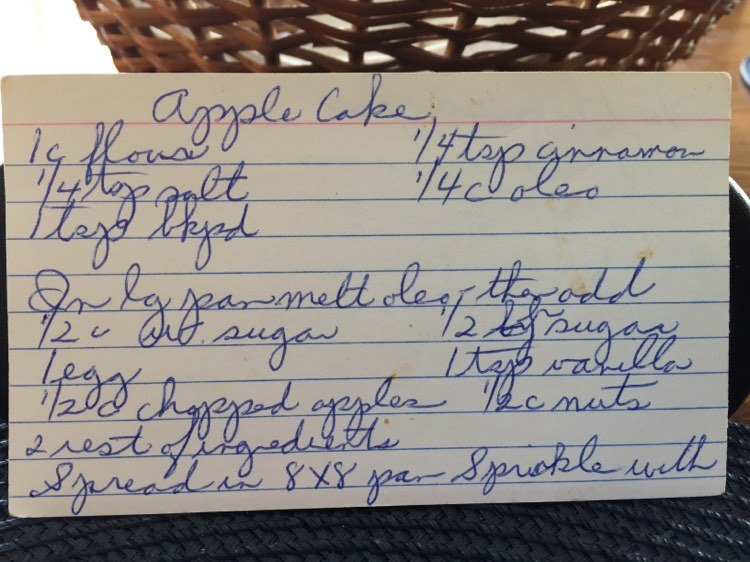 Apple Cake
1 c flour 1/4 tsp cinnamon
1/4 tsp salt 1/4 c oleo
1 tsp bkpd
In lg pan melt oleo, then add
1/2 c sugar 1/2 sugar
1 egg 1 tsp vanilla
1/2 c chopped apples 1/2 c nuts
2 rest of ingredients
Spread in 8X8 pan Sprinkle with